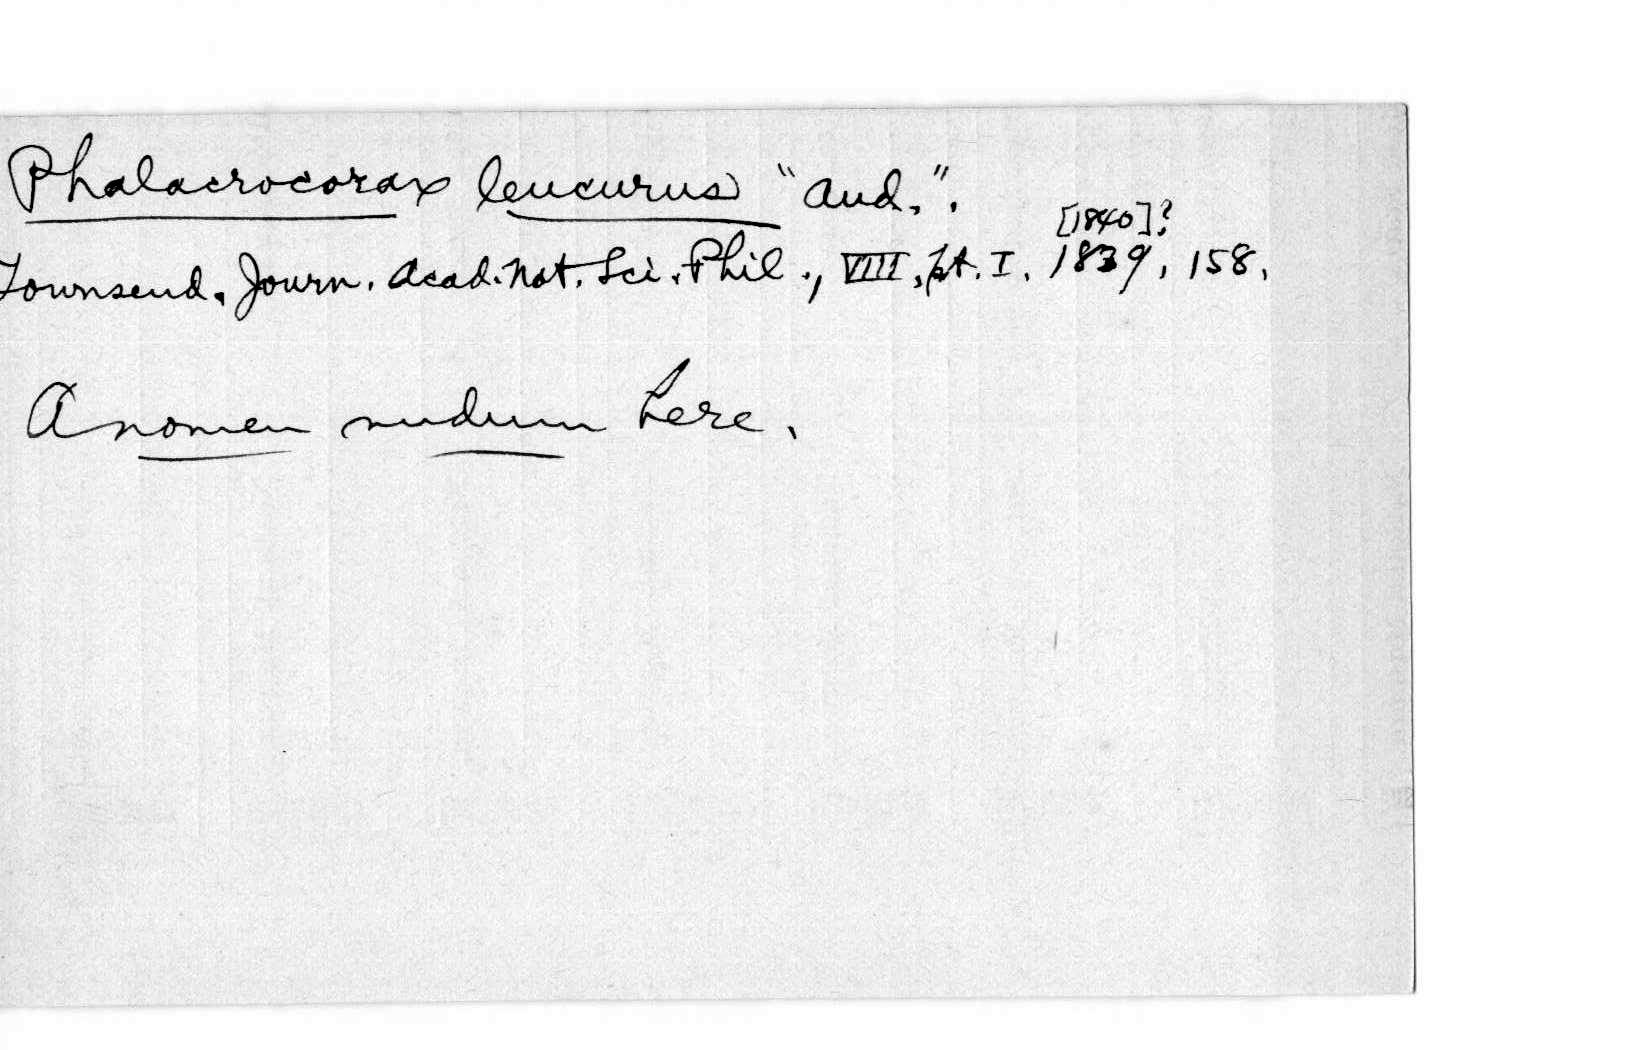 Phalacrocorax leucurus "Aud.".
[1840]?
Townsend. Journ. Acad. Nat. Sci. Phil., VIII, pt. I. 1839, 158.
A nomen nudum here.